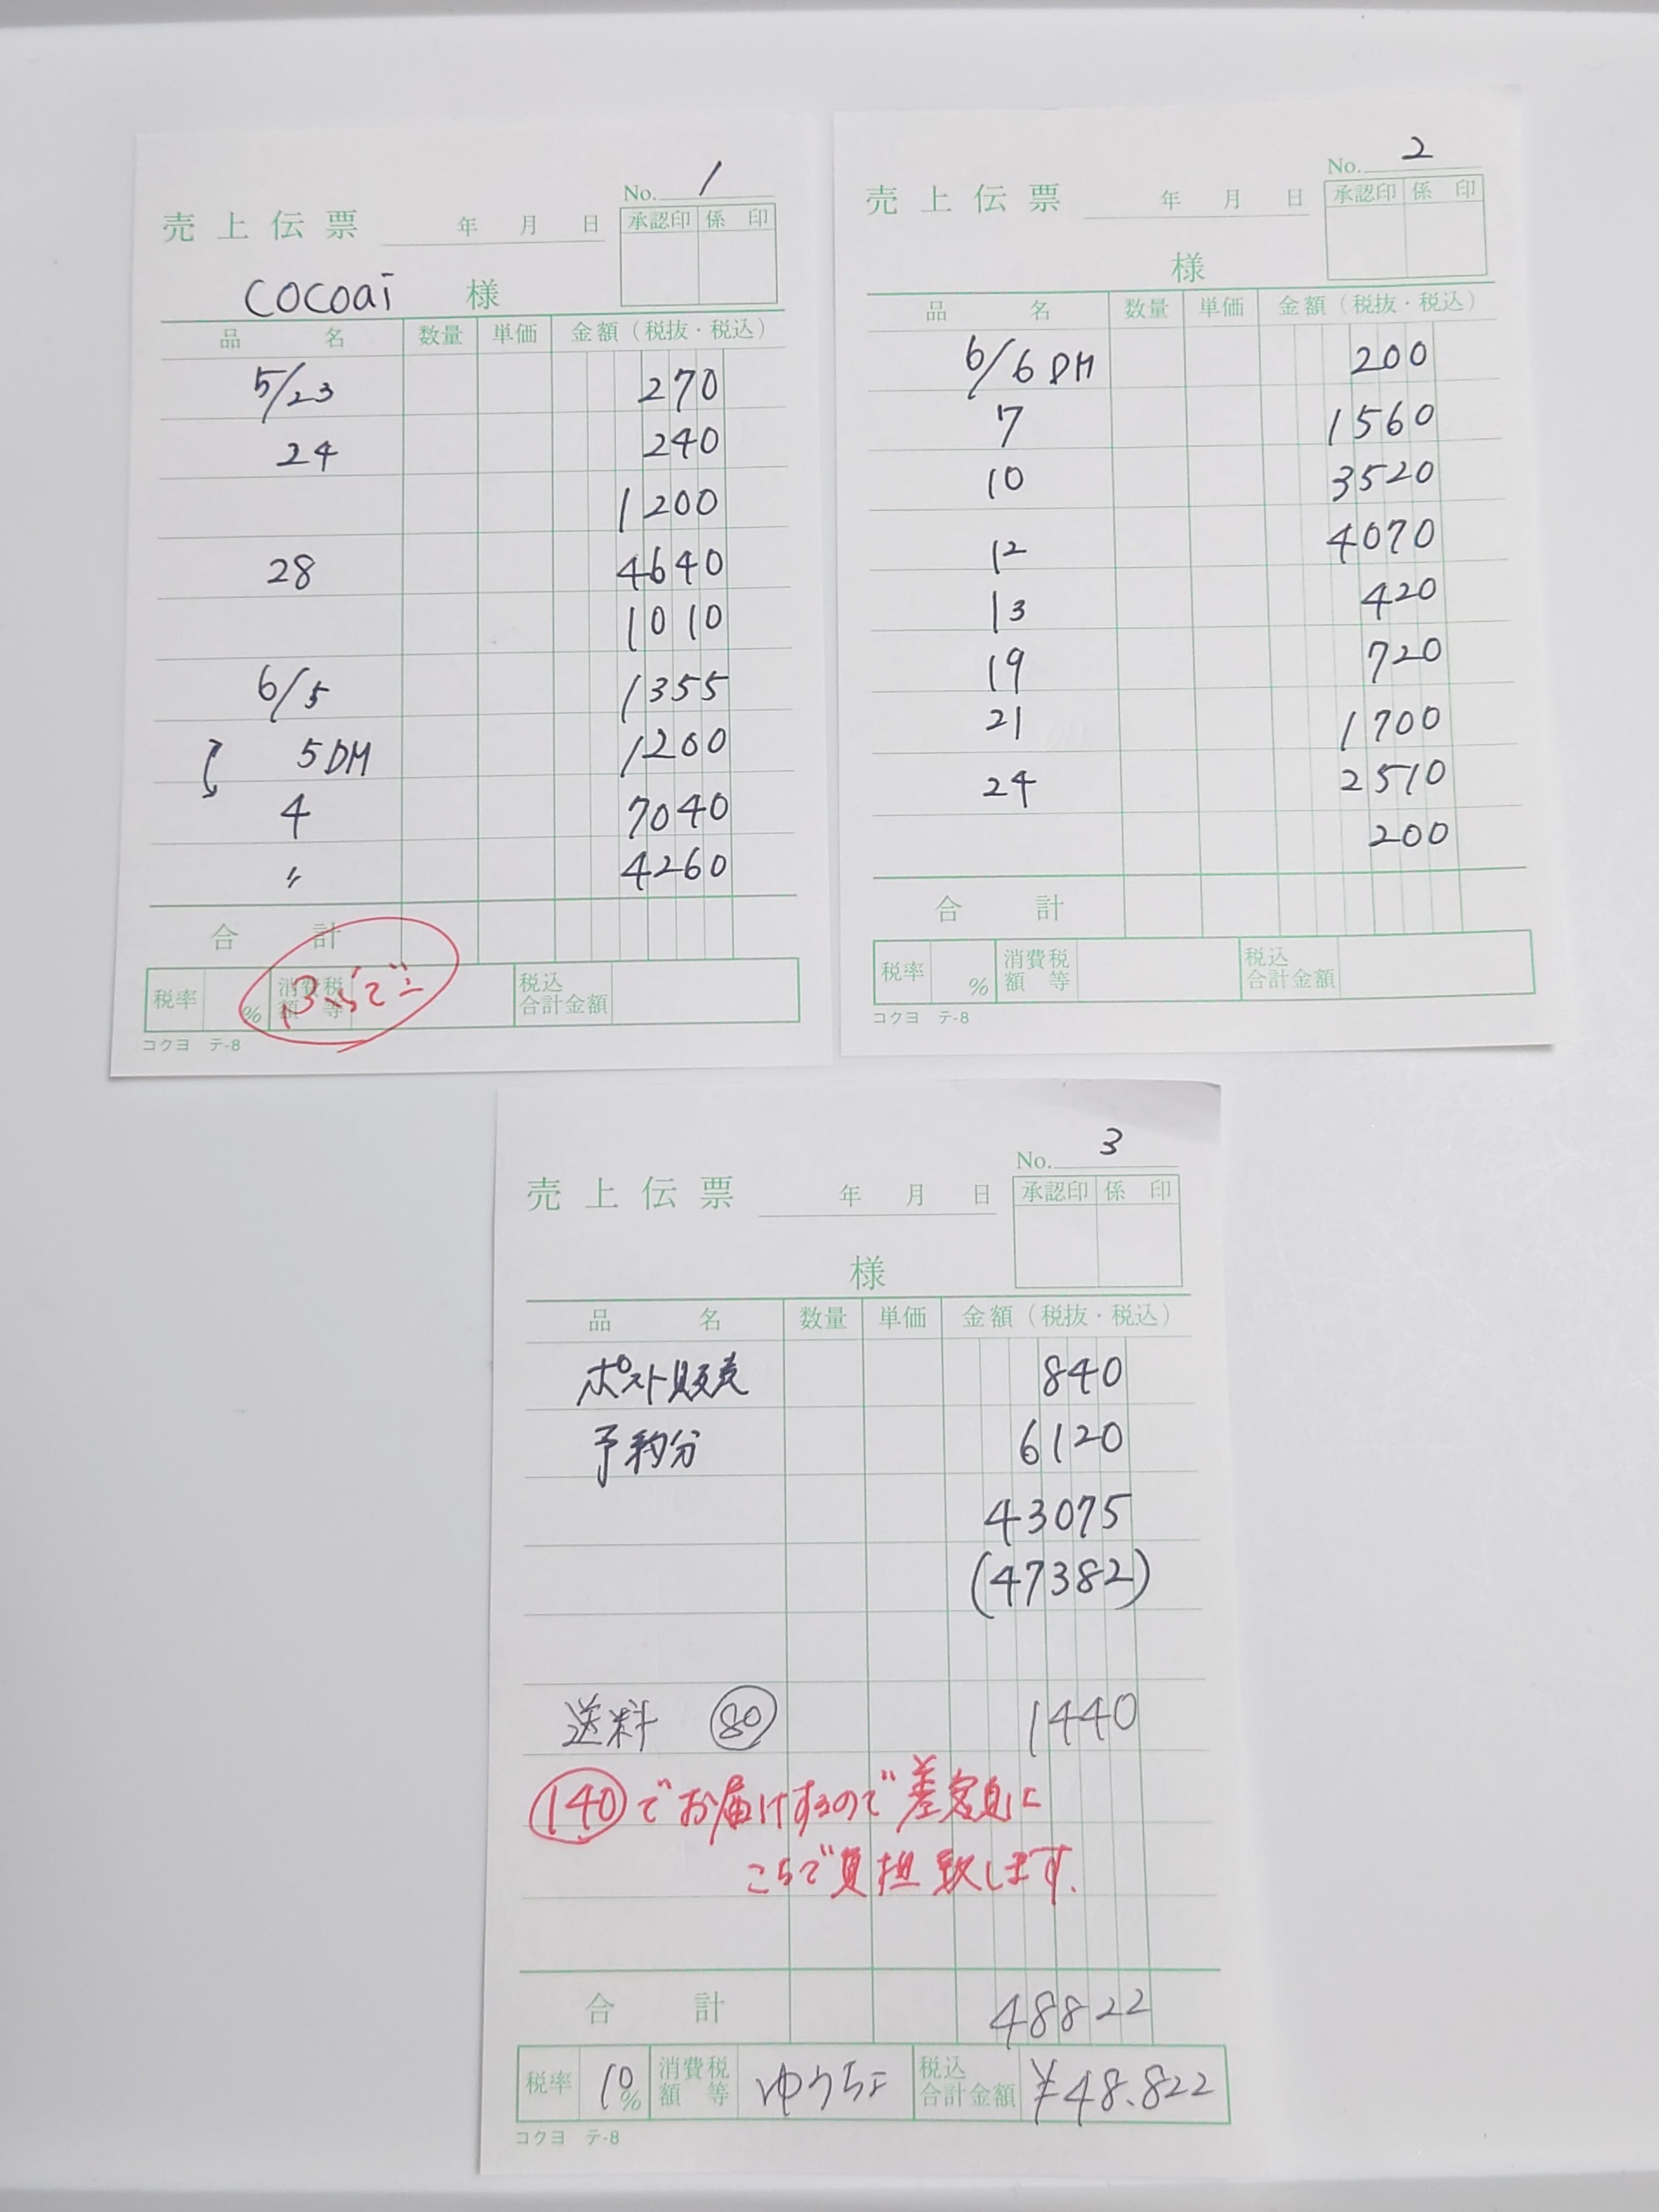 No. 1
売上伝票 年 月 日 承認印 係 印
cocoai 様
品 名 数量 単価 金額(税抜・税込)
5/23 270
24 240
1200
28 4640
1010
6/5 1355
5DM 1200
4 7040
〃 4260
合 計
税率 % 消費税額等 税込合計金額
コクヨ テ-8
No. 2
売上伝票 年 月 日 承認印 係 印
様
品 名 数量 単価 金額(税抜・税込)
6/6 DM 200
7 1560
10 3520
12 4070
13 420
19 720
21 1700
24 2510
200
合 計
税率 % 消費税額等 税込合計金額
コクヨ テ-8
No. 3
売上伝票 年 月 日 承認印 係 印
様
品 名 数量 単価 金額(税抜・税込)
ポスト販売 840
予約分 6120
43075
(47382)
送料 80 1440
140でお届けするので差額は
こちで負担致します.
合 計 48822
税率 10% 消費税額等 ゆうちょ 税込合計金額 ¥48.822
コクヨ テ-8